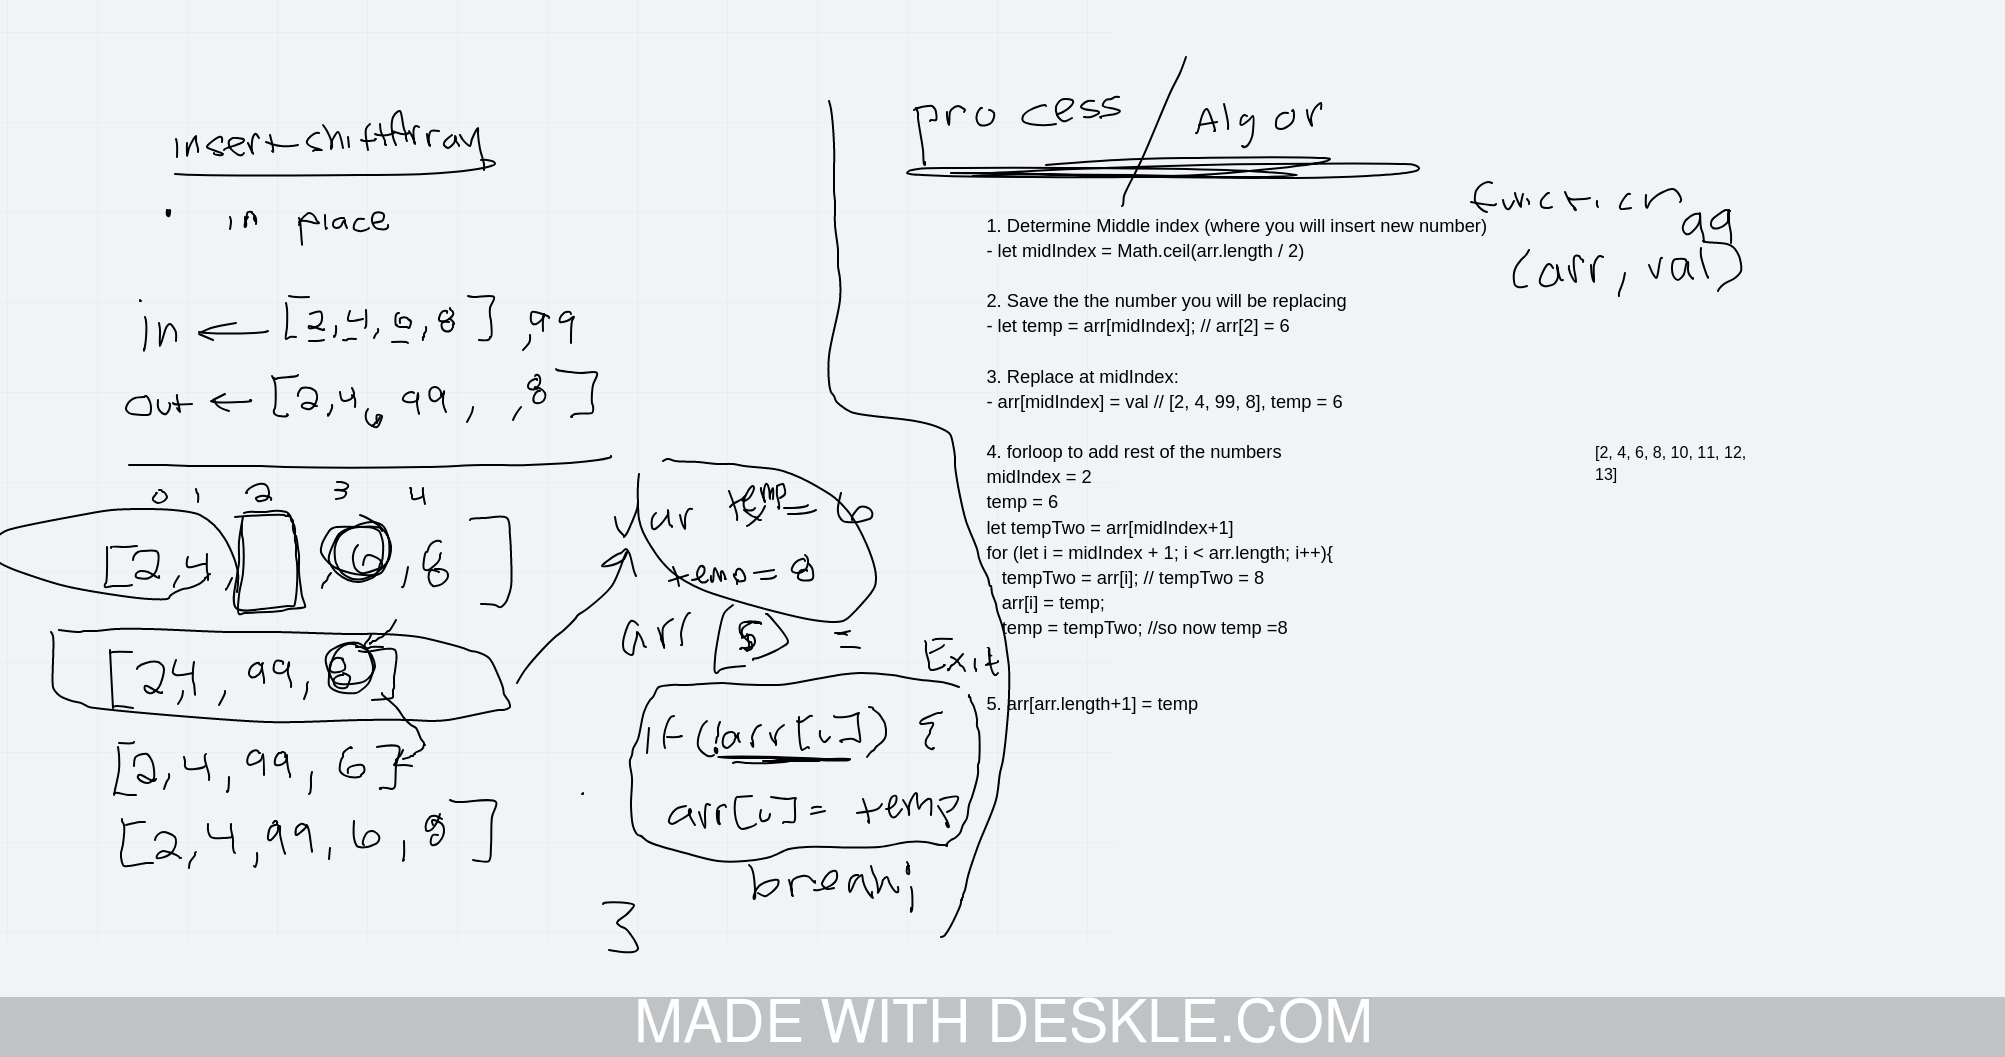 insertshiftArray
· in place
in ← [2,4,6,8] ,99
out ← [2,4, 99, ,8]
6
0 1 2 3 4
[2,4, ,6,8 ]
[2,4, 99, 8]
[2,4,99,6]
[2,4,99,6,8]
3
var temp= 6
temp=8
arr [3] =
Exit
if(!arr[i]) {
arr[i]= temp
break;
process / Algor
function
99
(arr, val)
1. Determine Middle index (where you will insert new number)
- let midIndex = Math.ceil(arr.length / 2)
2. Save the the number you will be replacing
- let temp = arr[midIndex]; // arr[2] = 6
3. Replace at midIndex:
- arr[midIndex] = val // [2, 4, 99, 8], temp = 6
4. forloop to add rest of the numbers
midIndex = 2
temp = 6
let tempTwo = arr[midIndex+1]
for (let i = midIndex + 1; i < arr.length; i++){
tempTwo = arr[i]; // tempTwo = 8
arr[i] = temp;
temp = tempTwo; //so now temp =8
5. arr[arr.length+1] = temp
[2, 4, 6, 8, 10, 11, 12,
13]
MADE WITH DESKLE.COM